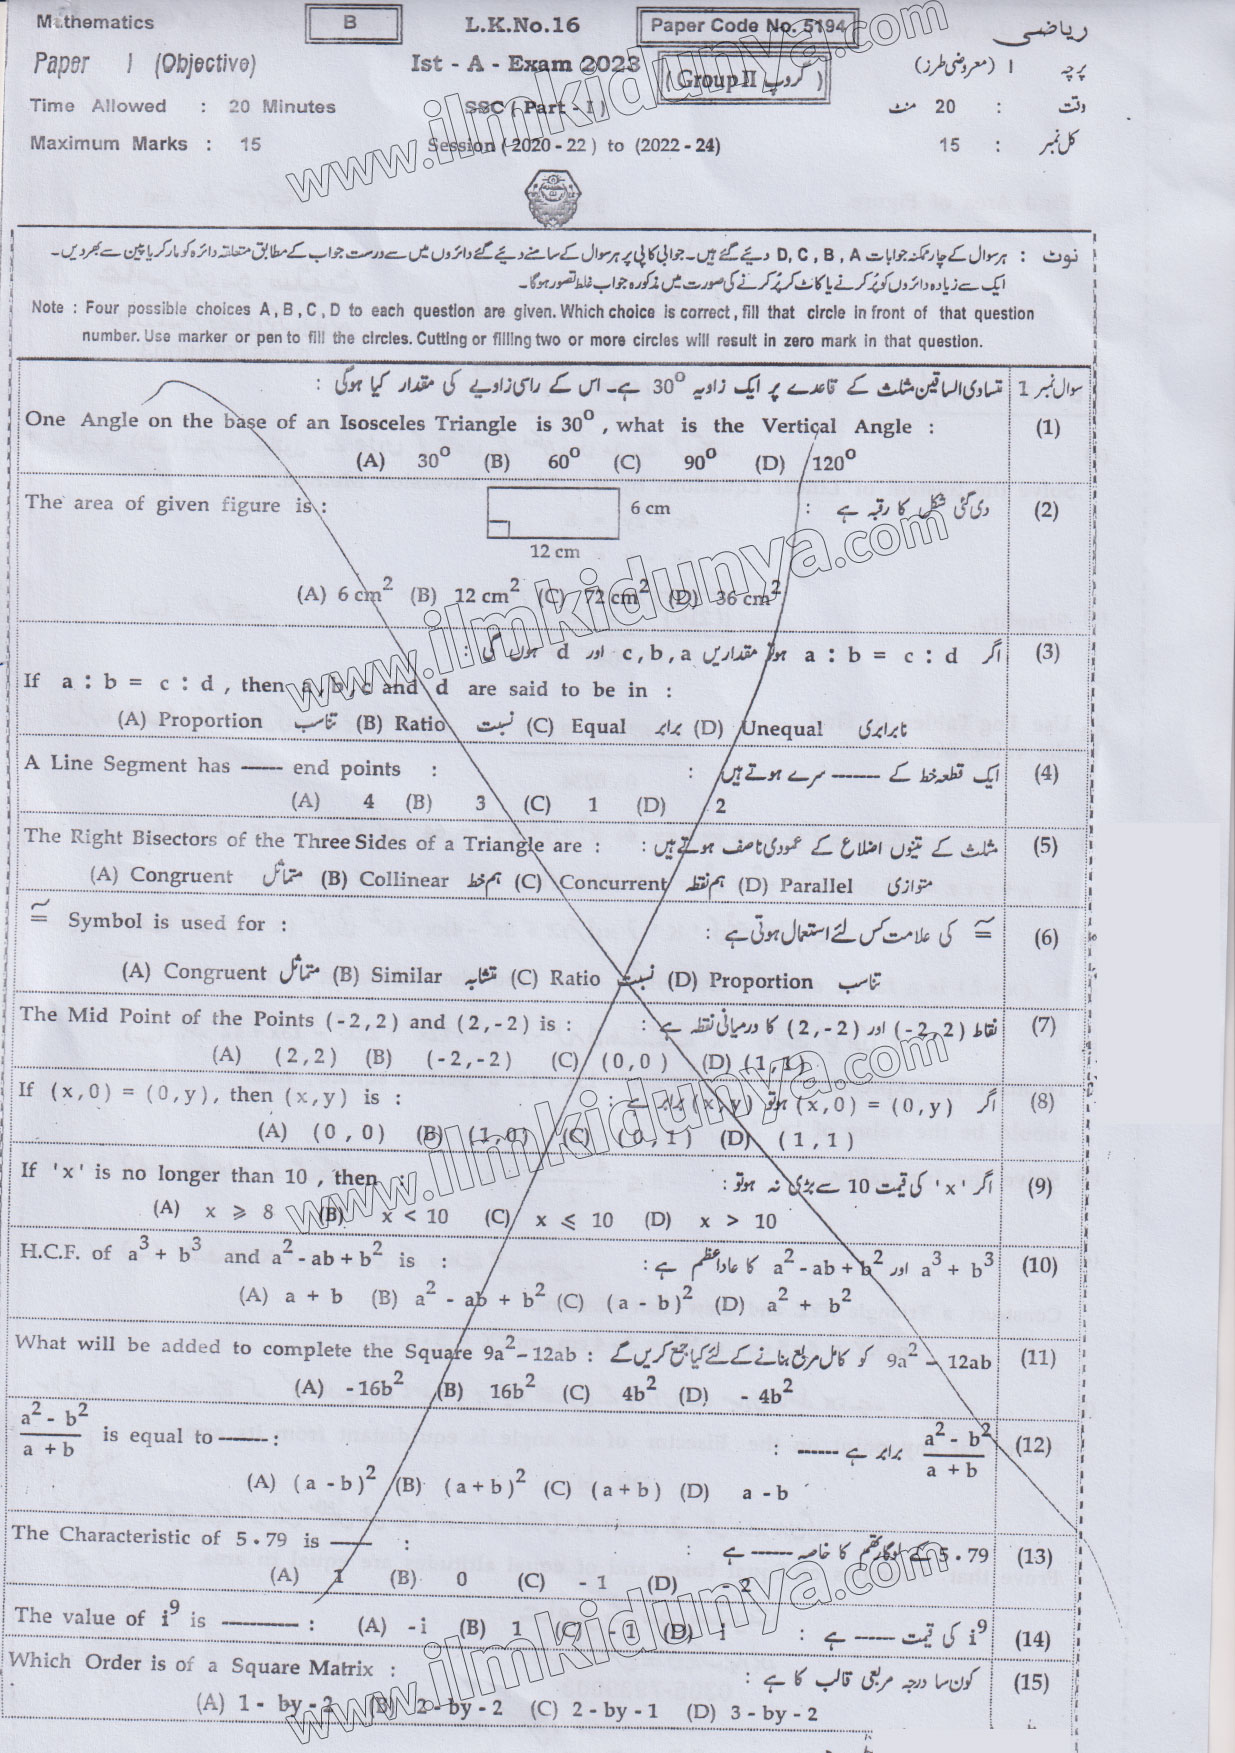 Mathematics B L.K.No.16 Paper Code No. 5194 ریاضی
Paper I (Objective) Ist - A - Exam 2023 ( Group II گروپ ) پرچہ I (معروضی طرز)
Time Allowed : 20 Minutes SSC ( Part - I ) وقت : 20 منٹ
Maximum Marks : 15 Session (-2020 - 22 ) to (2022 - 24) کل نمبر : 15
نوٹ : ہر سوال کے چار ممکنہ جوابات D, C, B, A دیئے گئے ہیں۔ جوابی کاپی پر ہر سوال کے سامنے دیئے گئے دائروں میں سے درست جواب کے مطابق متعلقہ دائرہ کو مارکر یا پین سے بھر دیں۔
ایک سے زیادہ دائروں کو پُر کرنے یا کاٹ کر پُر کرنے کی صورت میں مذکورہ جواب غلط تصور ہوگا۔
Note : Four possible choices A, B, C, D to each question are given. Which choice is correct, fill that circle in front of that question
number. Use marker or pen to fill the circles. Cutting or filling two or more circles will result in zero mark in that question.
سوال نمبر 1 متساوی الساقین مثلث کے قاعدے پر ایک زاویہ 30° ہے۔ اس کے راسی زاویے کی مقدار کیا ہوگی :
One Angle on the base of an Isosceles Triangle is 30°, what is the Vertical Angle : (1)
(A) 30° (B) 60° (C) 90° (D) 120°
The area of given figure is : 6 cm دی گئی شکل کا رقبہ ہے : (2)
12 cm
(A) 6 cm² (B) 12 cm² (C) 72 cm² (D) 36 cm²
اگر a : b = c : d ہو تو مقداریں c, b, a اور d ہوں گی : (3)
If a : b = c : d , then a, b, c and d are said to be in :
(A) Proportion تناسب (B) Ratio نسبت (C) Equal برابر (D) Unequal نابرابری
A Line Segment has ----- end points : ایک قطعہ خط کے ------- سرے ہوتے ہیں : (4)
(A) 4 (B) 3 (C) 1 (D) 2
The Right Bisectors of the Three Sides of a Triangle are : مثلث کے تینوں اضلاع کے عمودی ناصف ہوتے ہیں : (5)
(A) Congruent متماثل (B) Collinear ہم خط (C) Concurrent ہم نقطہ (D) Parallel متوازی
≅ Symbol is used for : ≅ کی علامت کس لئے استعمال ہوتی ہے : (6)
(A) Congruent متماثل (B) Similar متشابہ (C) Ratio نسبت (D) Proportion تناسب
The Mid Point of the Points (-2,2) and (2,-2) is : نقاط (-2,2) اور (2,-2) کا درمیانی نقطہ ہے : (7)
(A) (2,2) (B) (-2,-2) (C) (0,0) (D) (1,1)
If (x,0) = (0,y), then (x,y) is : اگر (x,0) = (0,y) ہو تو (x,y) برابر ہے : (8)
(A) (0,0) (B) (1,0) (C) (0,1) (D) (1,1)
If 'x' is no longer than 10 , then : اگر 'x' کی قیمت 10 سے بڑی نہ ہو تو : (9)
(A) x ⩾ 8 (B) x < 10 (C) x ⩽ 10 (D) x > 10
H.C.F. of a³ + b³ and a² - ab + b² is : a³ + b³ اور a² - ab + b² کا عاداعظم ہے : (10)
(A) a + b (B) a² - ab + b² (C) (a - b)² (D) a² + b²
What will be added to complete the Square 9a² - 12ab : 9a² - 12ab کو کامل مربع بنانے کے لئے کیا جمع کریں گے (11)
(A) -16b² (B) 16b² (C) 4b² (D) - 4b²
a² - b² / a + b is equal to ------ : a² - b² / a + b برابر ہے ------ : (12)
(A) (a - b)² (B) (a + b)² (C) (a + b) (D) a - b
The Characteristic of 5.79 is ----- : 5.79 کے لوگارتھم کا خاصہ ----- ہے : (13)
(A) 1 (B) 0 (C) - 1 (D) - 2
The value of i⁹ is ---------- : (A) -i (B) 1 (C) - 1 (D) i i⁹ کی قیمت ----- ہے : (14)
Which Order is of a Square Matrix : کون سا درجہ مربعی قالب کا ہے : (15)
(A) 1 - by - 2 (B) 2 - by - 2 (C) 2 - by - 1 (D) 3 - by - 2
www.ilmkidunya.com
www.ilmkidunya.com
www.ilmkidunya.com
www.ilmkidunya.com